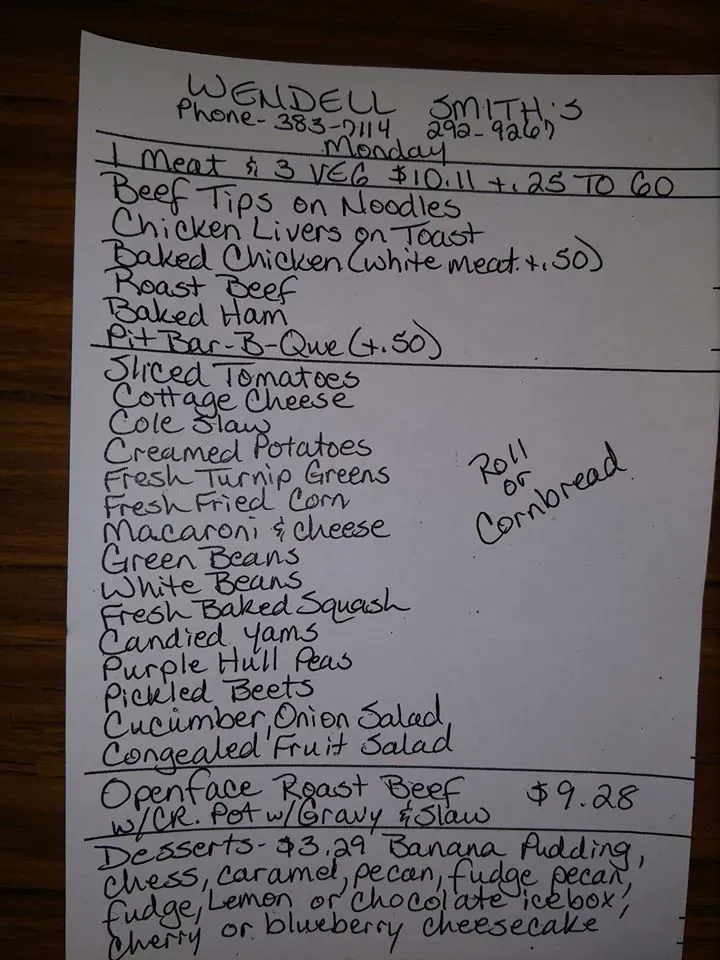 WENDELL SMITH'S
Phone- 383-7114 292-9267
Monday
1 Meat & 3 VEG $10.11 +.25 TO GO
Beef Tips on Noodles
Chicken Livers on Toast
Baked Chicken (white meat +.50)
Roast Beef
Baked Ham
Pit Bar-B-Que (+.50)
Sliced Tomatoes
Cottage Cheese
Cole Slaw
Creamed Potatoes
Fresh Turnip Greens
Fresh Fried Corn
Macaroni & cheese
Green Beans
White Beans
Fresh Baked Squash
Candied Yams
Purple Hull Peas
Pickled Beets
Cucumber, Onion Salad
Congealed Fruit Salad
Roll
or
Cornbread
Openface Roast Beef $9.28
w/CR. Pot w/Gravy & Slaw
Desserts- $3.29 Banana Pudding,
chess, caramel, pecan, fudge pecan,
fudge, Lemon or chocolate icebox,
cherry or blueberry cheesecake